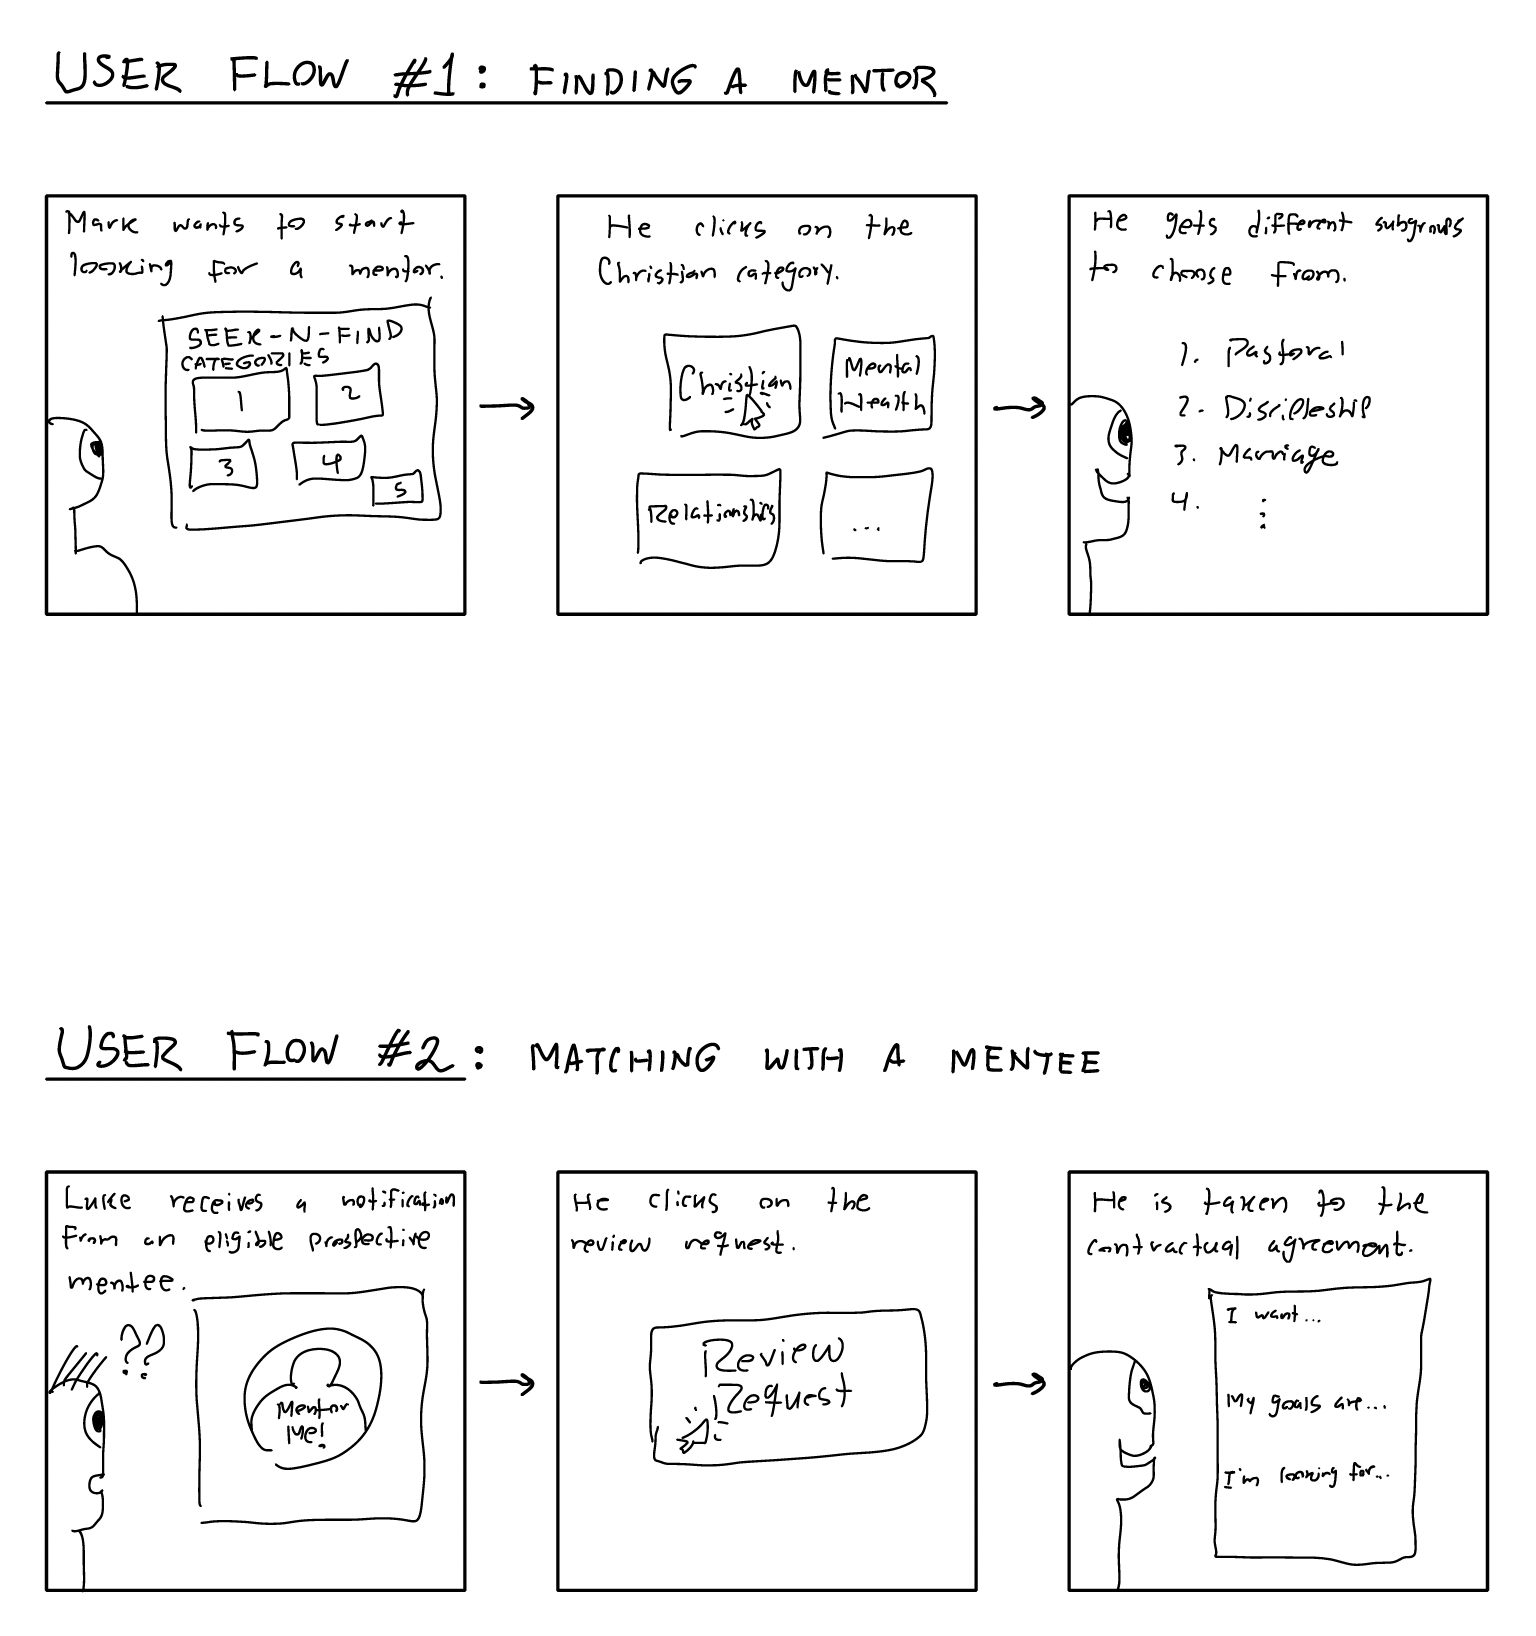 USER FLOW #1: FINDING A MENTOR
Mark wants to start
looking for a mentor.
SEEK-N-FIND
CATEGORIES
1
2
3
4
5
He clicks on the
Christian category.
Christian
Mental
Health
Relationships
...
He gets different subgroups
to choose from.
1. Pastoral
2. Discipleship
3. Marriage
4. ⋮
USER FLOW #2: MATCHING WITH A MENTEE
Luke receives a notification
from an eligible prospective
mentee.
??
Mentor
Me!
He clicks on the
review request.
Review
Request
He is taken to the
contractual agreement.
I want...
My goals are...
I'm looking for...